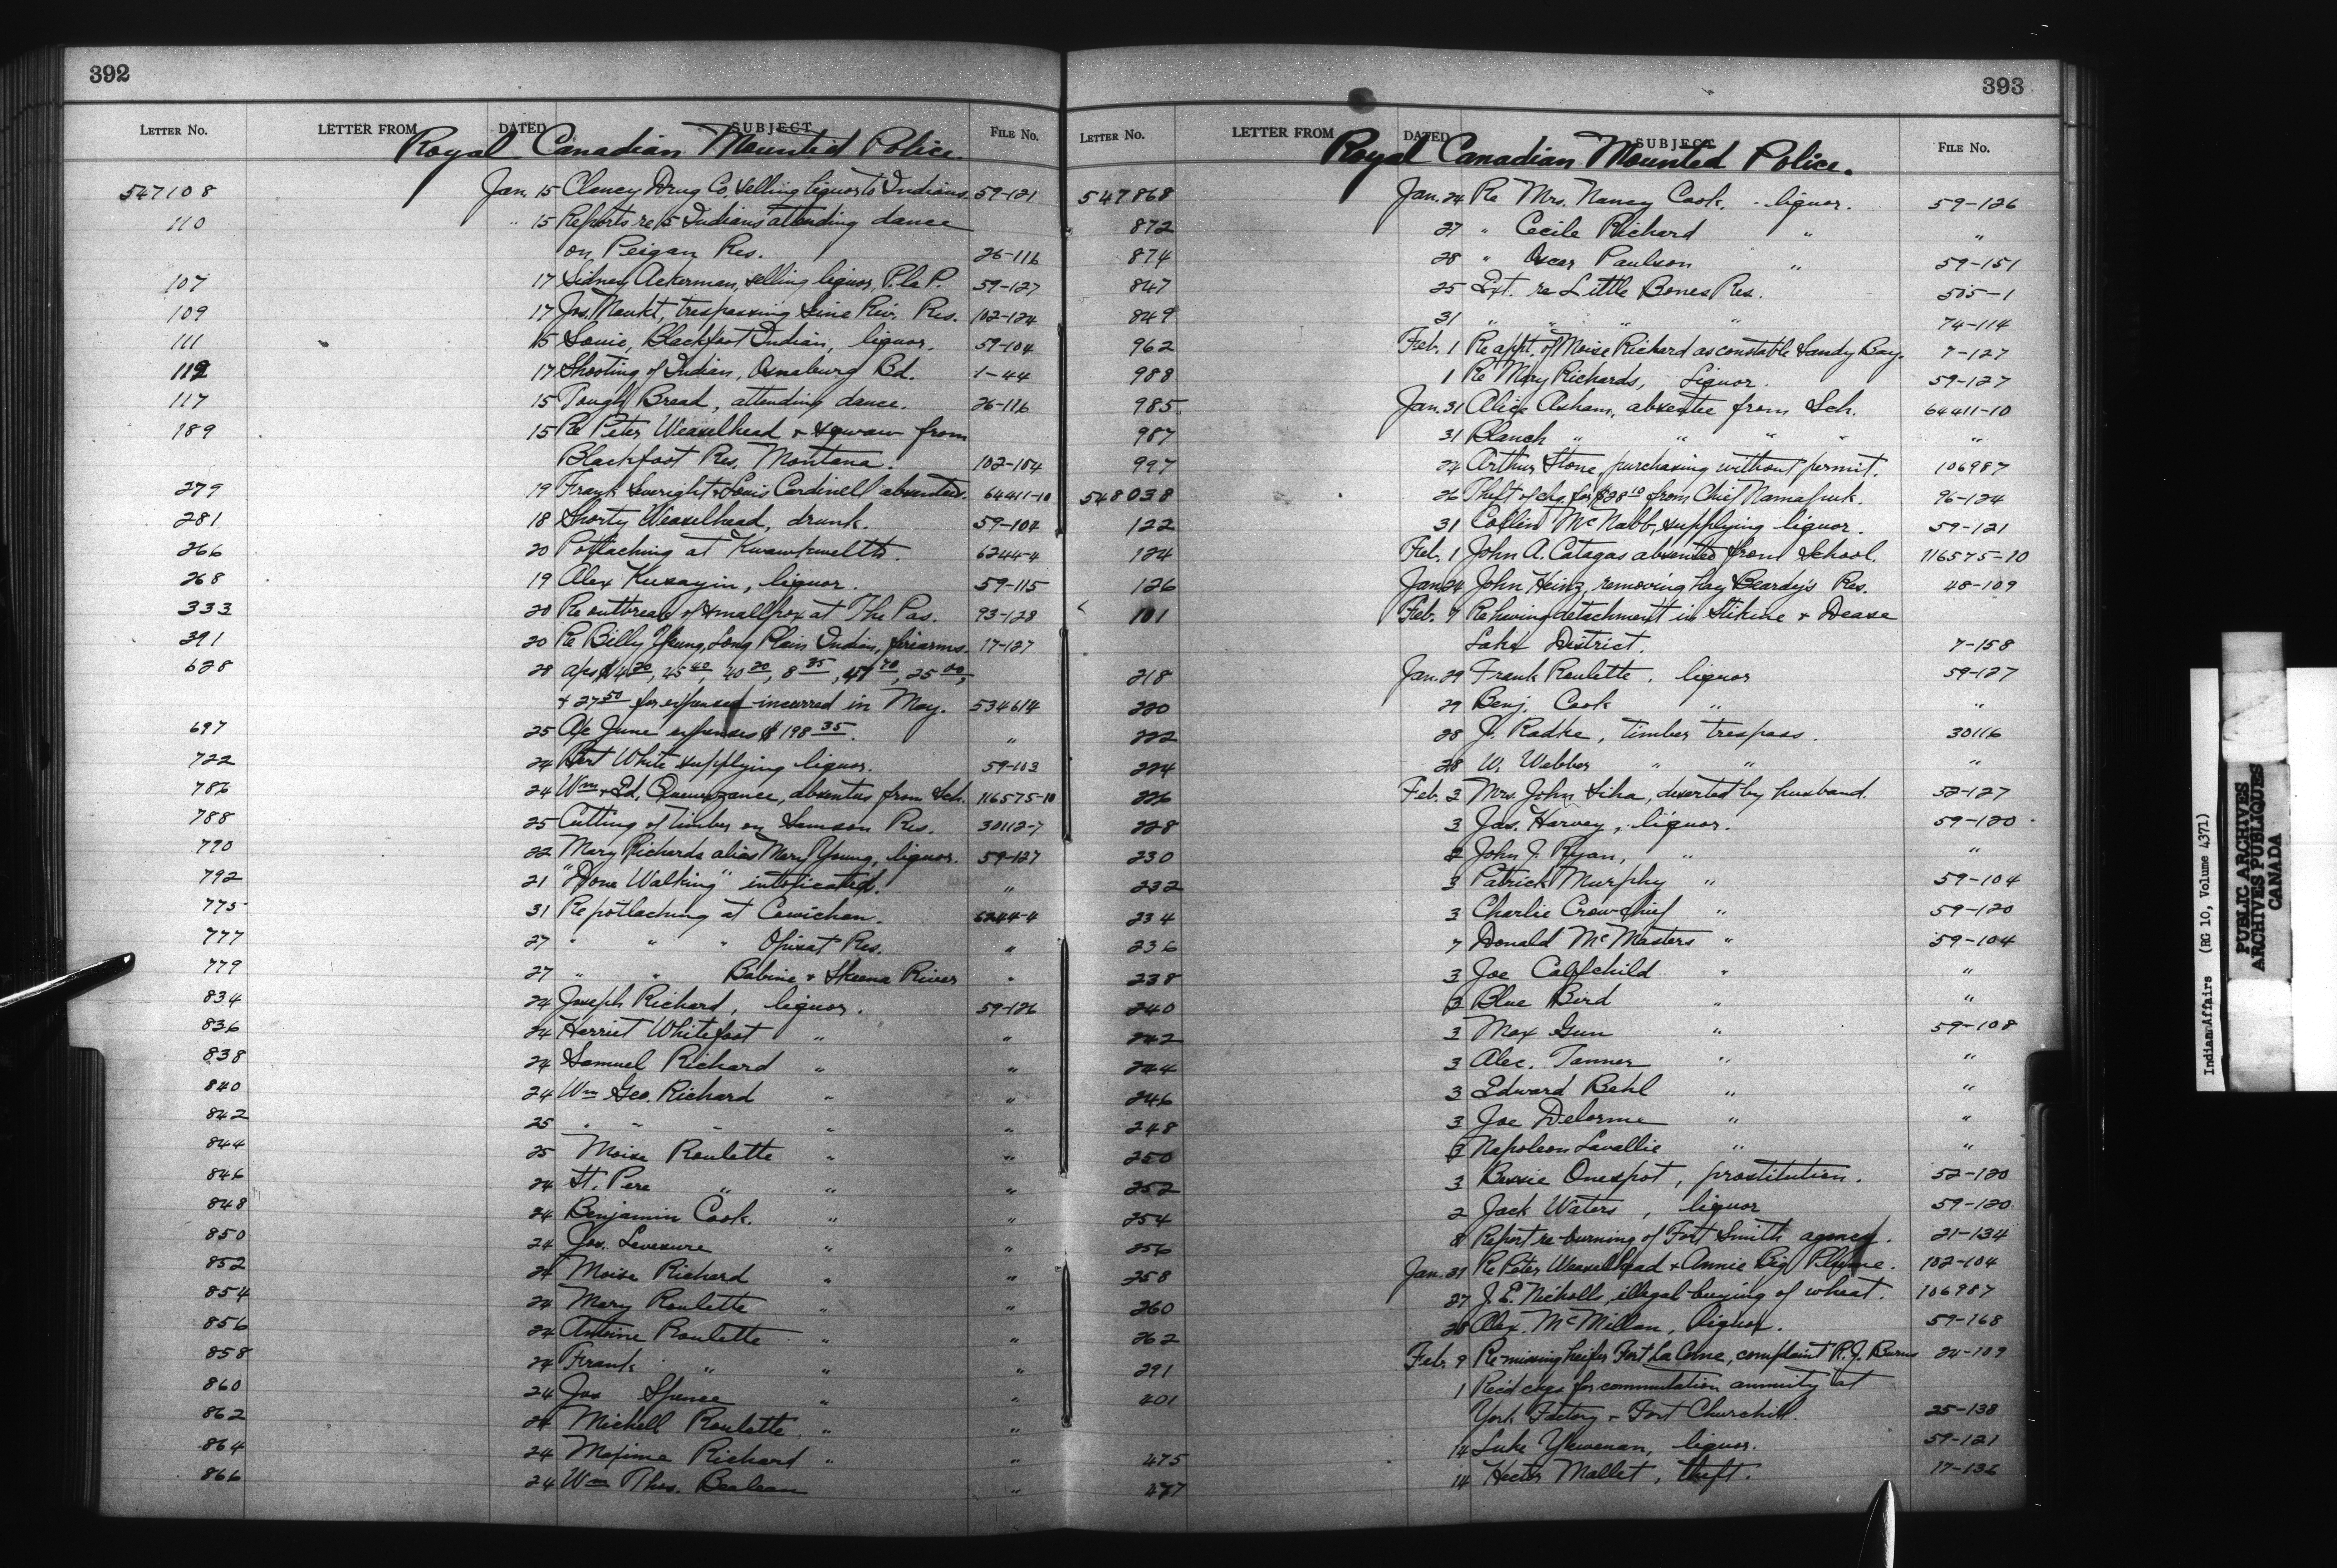 392
LETTER NO. LETTER FROM DATED SUBJECT FILE NO.
Royal Canadian Mounted Police.
547108 Jan. 15 Clancy Drug Co. selling liquor to Indians. 59-121
110 " 15 Reports re 15 Indians attending dance
on Peigan Res. 26-116
107 17 Sidney Ackerman, selling liquor, P. la P. 59-127
109 17 Jos. trespassing Seine Riv. Res. 102-124
111 15 Louie, Blackfoot Indian, liquor. 59-104
112 17 Shooting of Indian, Osnaburg Bd. 1-44
117 15 Tough Bread, attending dance. 26-116
189 15 Re Peter Weaselhead & squaw from
Blackfoot Res. Montana. 102-104
279 19 Frank & Louis Cardinell absentees. 64411-10
281 18 Shorty Weaselhead, drunk. 59-104
266 20 Potlaching at Kwawkwelth 6244-4
268 19 Alex liquor. 59-115
333 20 Re outbreak of smallpox at The Pas. 93-128
391 20 Re Billy Young, Long Plain Indian, firearms. 17-127
628 28 40 20, 8 25, 25 00,
& 27 50 for expenses incurred in May. 534614
697 25 A/c June expenses $198 35. "
722 24 Bert White supplying liquor. 59-103
786 24 Wm & Ed. Quewezance, absentees from Sch. 116575-10
788 25 Cutting of timber on Samson Res. 30112-7
790 22 Mary Richards alias Mary Young, liquor. 59-127
792 21 "Done Walking" intoxicated. "
775 31 Re potlaching at Cowichan. 6244-4
777 27 " " " Opisat Res. "
779 27 " " Babine & Skeena River "
834 24 Joseph Richard, liquor. 59-126
836 24 Harriet Whitefoot " "
838 24 Samuel Richard " "
840 24 Wm Geo. Richard " "
842 25 " " " " "
844 25 Moise Roulette " "
846 24 St. Pere " " "
848 24 Benjamin Cook. " "
850 24 Jos. " "
852 24 Moise Richard " "
854 24 Mary Roulette " "
856 24 Antoine Roulette " "
858 24 Frank " " "
860 24 Jos Spence " "
862 24 Michell Roulette " "
864 24 Maxime Richard " "
866 24 Wm Thos. Beaulieau "
393
LETTER NO. LETTER FROM DATED SUBJECT FILE NO.
Royal Canadian Mounted Police.
547868 Jan. 24 Re Mrs. Nancy Cook. - liquor. 59-126
872 27 " Cecile Richard " "
874 28 " Oscar Paulson " 59-151
847 25 Ext. re Little Bones Res. 505-1
849 31 " " " " 74-114
962 Feb. 1 Re appt. of Moise Richard as constable Sandy Bay. 7-127
988 1 Re Mary Richards, Liquor. 59-127
985 Jan. 31 Alice Axham, absentee from Sch. 64411-10
987 31 Blanch " " " " "
997 24 Arthur Stone, purchasing without permit. 106987
548038 26 Theft of chq. for $28 10 from Chief Namapuk. 96-124
122 31 Collin McNabb, supplying liquor. 59-121
124 Feb. 1 John A. Catagas absented from School. 116575-10
126 Jan. 24 John Heinz, removing hay Beardy's Res. 48-109
101 Feb. 7 Re having detachment in Stikine & Dease
Lake District. 7-158
218 Jan. 29 Frank Roulette, liquor 59-127
220 29 Benj. Cook " "
222 28 J. Radke, timber trespass. 30116
224 28 W. Webber " " "
226 Feb. 3 Mrs. John Siha, deserted by husband. 52-127
228 3 Jas. Harvey, liquor. 59-120
230 2 John J. Ryan, " "
232 3 Patrick Murphy " 59-104
234 3 Charlie Crowchief " 59-120
236 7 Donald McMasters " 59-104
238 3 Joe Calfchild " "
240 3 Blue Bird " "
242 3 Max Gun " 59-108
244 3 Alec. Tanner " "
246 3 Edward Behl " "
248 3 Joe Delorme " "
250 3 Napoleon Lavallie " "
252 3 Bessie Onespot, prostitution. 52-120
254 2 Jack Waters, liquor 59-120
256 8 Report re burning of Fort Smith agency. 21-134
258 Jan. 31 Re Peter Weaselhead & Annie Big Plume. 102-104
260 27 J. E. Nicholls, illegal buying of wheat. 106987
262 28 Alex. McMillan, liquor. 59-168
291 Feb. 9 Re missing heifer Fort La Corne, complaint R. J. Burns 24-109
401 1 Rec'd chqs for commutation annuity at
York Factory & Fort Churchill. 25-138
475 14 Luke liquor. 59-121
477 14 Hector Mallet, theft. 17-136
Indian Affairs (RG 10, Volume 4371)
PUBLIC ARCHIVES
ARCHIVES PUBLIQUES
CANADA